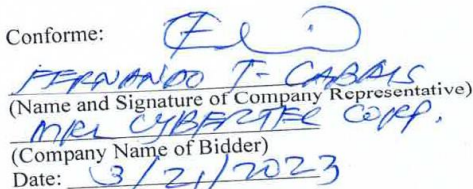 Conforme:
FERNANDO T- CABRAIS
(Name and Signature of Company Representative)
MRL CYBERTEC CORP.
(Company Name of Bidder)
Date: 3/21/2023